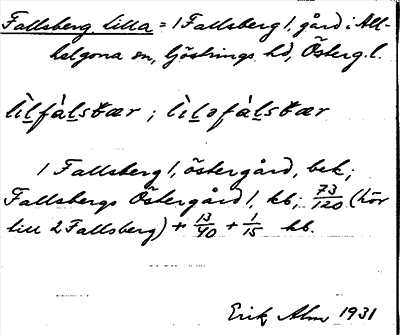 Fallsberg, Lilla = 1 Fallsberg 1, gård i All-
helgona sn, Göstrings hd, Österg. l.
lìlfàlsbær ; lìləfàlsbær
1 Fallsberg 1, östergård, bek;
Fallsbergs Östergård 1, kb; 73/120 (hör
till 2 Fallsberg) + 13/40 + 1/15 kb.
Erik Alm 1931